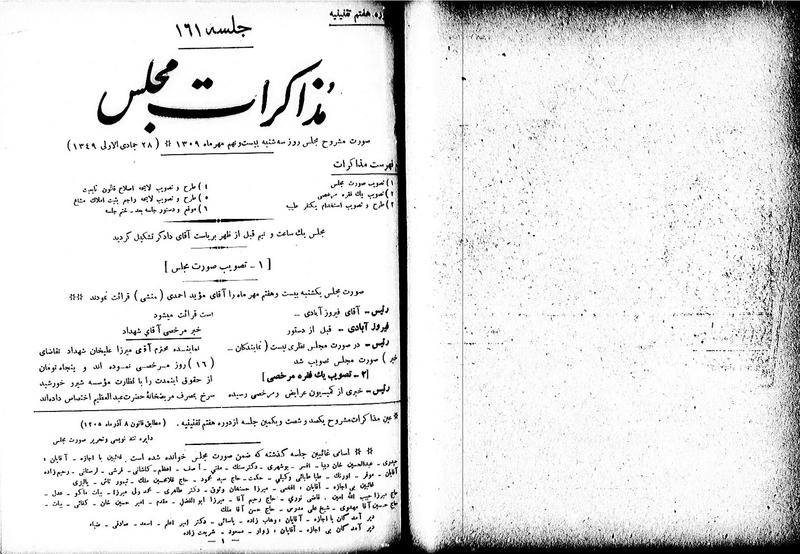 دوره هفتم تقنینیه
جلسه ۱۶۱
مذاکرات مجلس
صورت مشروح مجلس روز سه شنبه بیست و نهم مهر ماه ۱۳۰۹ * ( ۲۸ جمادی الاولی ۱۳۴۹ )
فهرست مذاکرات
۱) تصویب صورت مجلس
۲) تصویب یك فقره مرخصی
۳) طرح و تصویب استخدام یکنفر طبیبه
۴) طرح و تصویب لایحه اصلاح قانون تابعیت
۵) طرح و تصویب لایحه راجع به ثبت املاك مشاع
۶) موقع و دستور جلسه بعد - ختم جلسه
مجلس یك ساعت و نیم قبل از ظهر بریاست آقای دادگر تشکیل گردید
[ ۱ - تصویب صورت مجلس ]
صورت مجلس یکشنبه بیست و هفتم مهر ماه را آقای مؤید احمدی ( منشی ) قرائت نمودند **
رئیس - آقای فیروز آبادی -
فیروز آبادی - قبل از دستور
رئیس - در صورت مجلس نظری نیست ( نمایندگان -
خیر ) صورت مجلس تصویب شد
[ ۲ - تصویب یك فقره مرخصی ]
رئیس - خبری از کمیسیون عرایض و مرخصی رسیده
است قرائت میشود
خبر مرخصی آقای شهداد
نماینده محترم آقای میرزا علیخان شهداد تقاضای
( ۱۶ ) روز مرخصی نموده اند و پنجاه تومان
از حقوق اینمدت را با نظارت مؤسسه شیر و خورشید
سرخ بمصرف مریضخانهٔ حضرت عبدالعظیم اختصاص داده اند
* عین مذاکرات مشروح یکصد و شصت و یکمین جلسه از دوره هفتم تقنینیه . ( مطابق قانون ۸ آذر ماه ۱۳۰۵ )
دایره تند نویسی و تحریر صورت مجلس
* * اسامی غائبین جلسه گذشته که ضمن صورت مجلس خوانده شده است
غائبین با اجازه - آقایان :
غائبین بی اجازه - آقایان :
دیر آمدگان با اجازه - آقایان : وهاب زاده - یاسائی - دکتر امیر اعلم - اسعد - صادقی -
دیر آمدگان بی اجازه - آقایان : زوار - مسعود - شریعت زاده
- ۱ -